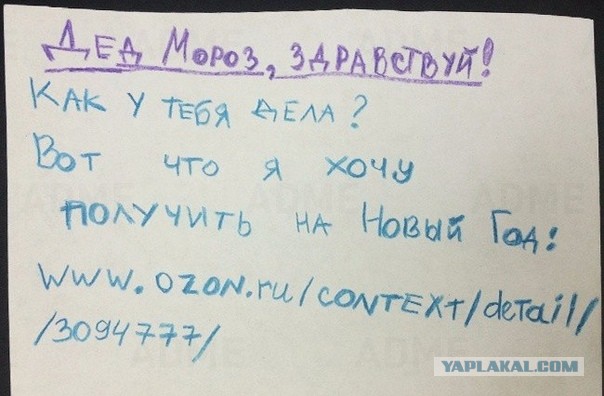 Дед Мороз, здравствуй!
Как у тебя дела?
Вот что я хочу
получить на Новый Год:
www.ozon.ru/context/detail/
/3094777/
YAPLAKAL.COM